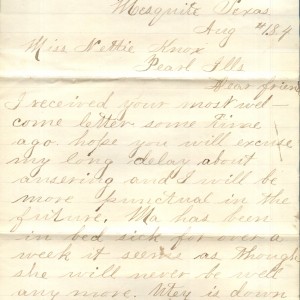 Mesquite Texas
Aug 21 84
Miss Nettie Knox
Pearl Ills
Dear friend
I received your most wel-
come letter some time
ago. hope you will excuse
my long delay about
ansering and I will be
more punctual in the
future. Ma has been
in bed sick for over a
week it seems as though
she will never be well
any more. is down